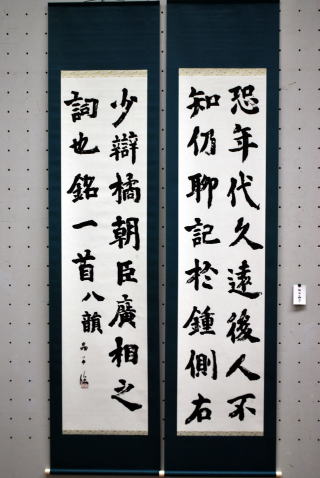 恐年代久遠後人不
知仍聊記於鍾側右
少辯橘朝臣廣相之
詞也銘一首八韻